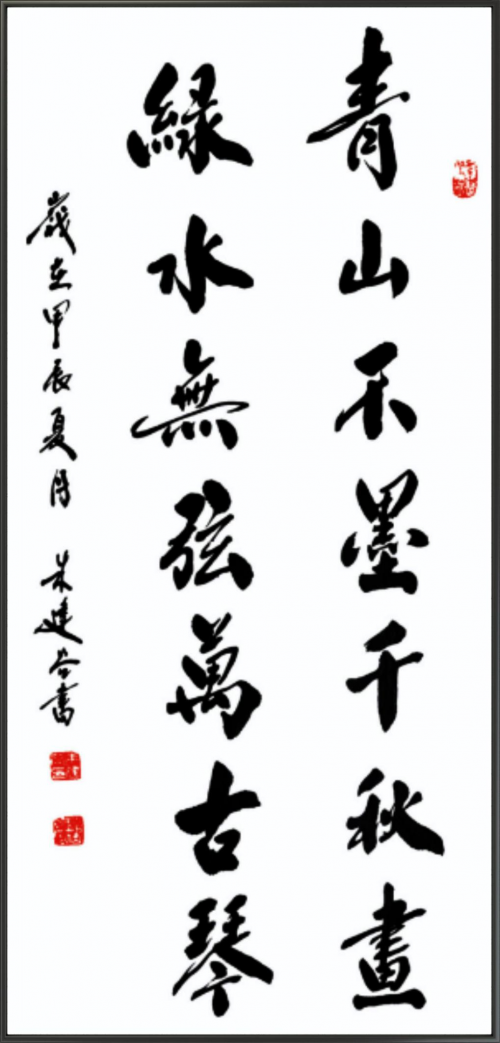 青山不墨千秋畫
綠水無弦萬古琴
歲在甲辰夏月 朱建谷書